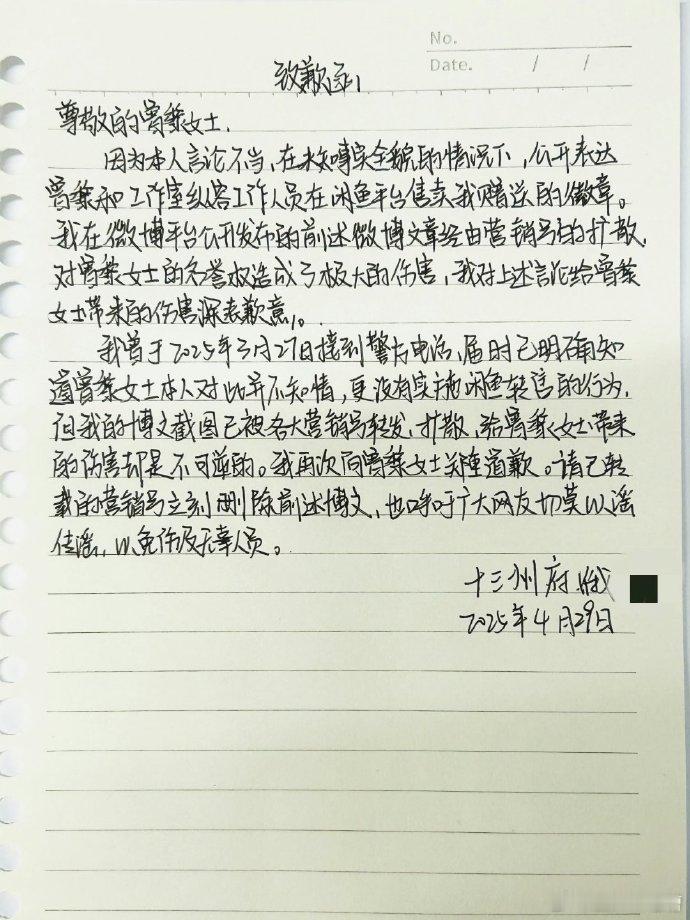 No.
Date. / /
致歉函
尊敬的曾黎女士,
因为本人言论不当,在未知事实全貌的情况下,公开表达
曾黎和工作室纵容工作人员在闲鱼平台售卖我赠送的徽章。
我在微博平台公开发布的前述微博文章经由营销号的扩散,
对曾黎女士的名誉权造成了极大的伤害,我对上述言论给曾黎
女士带来的伤害深表歉意。
我曾于2025年3月27日接到警方电话,届时已明确知
道曾黎女士本人对此并不知情,更没有实施闲鱼转售的行为,
但我的博文截图已被各大营销号转发、扩散,给曾黎女士带来
的伤害却是不可逆的。我再次向曾黎女士郑重道歉。请已转
载的营销号立刻删除前述博文,也呼吁广大网友切莫以谣
传谣,以免伤及无辜人员。
十三州府
2025年4月29日